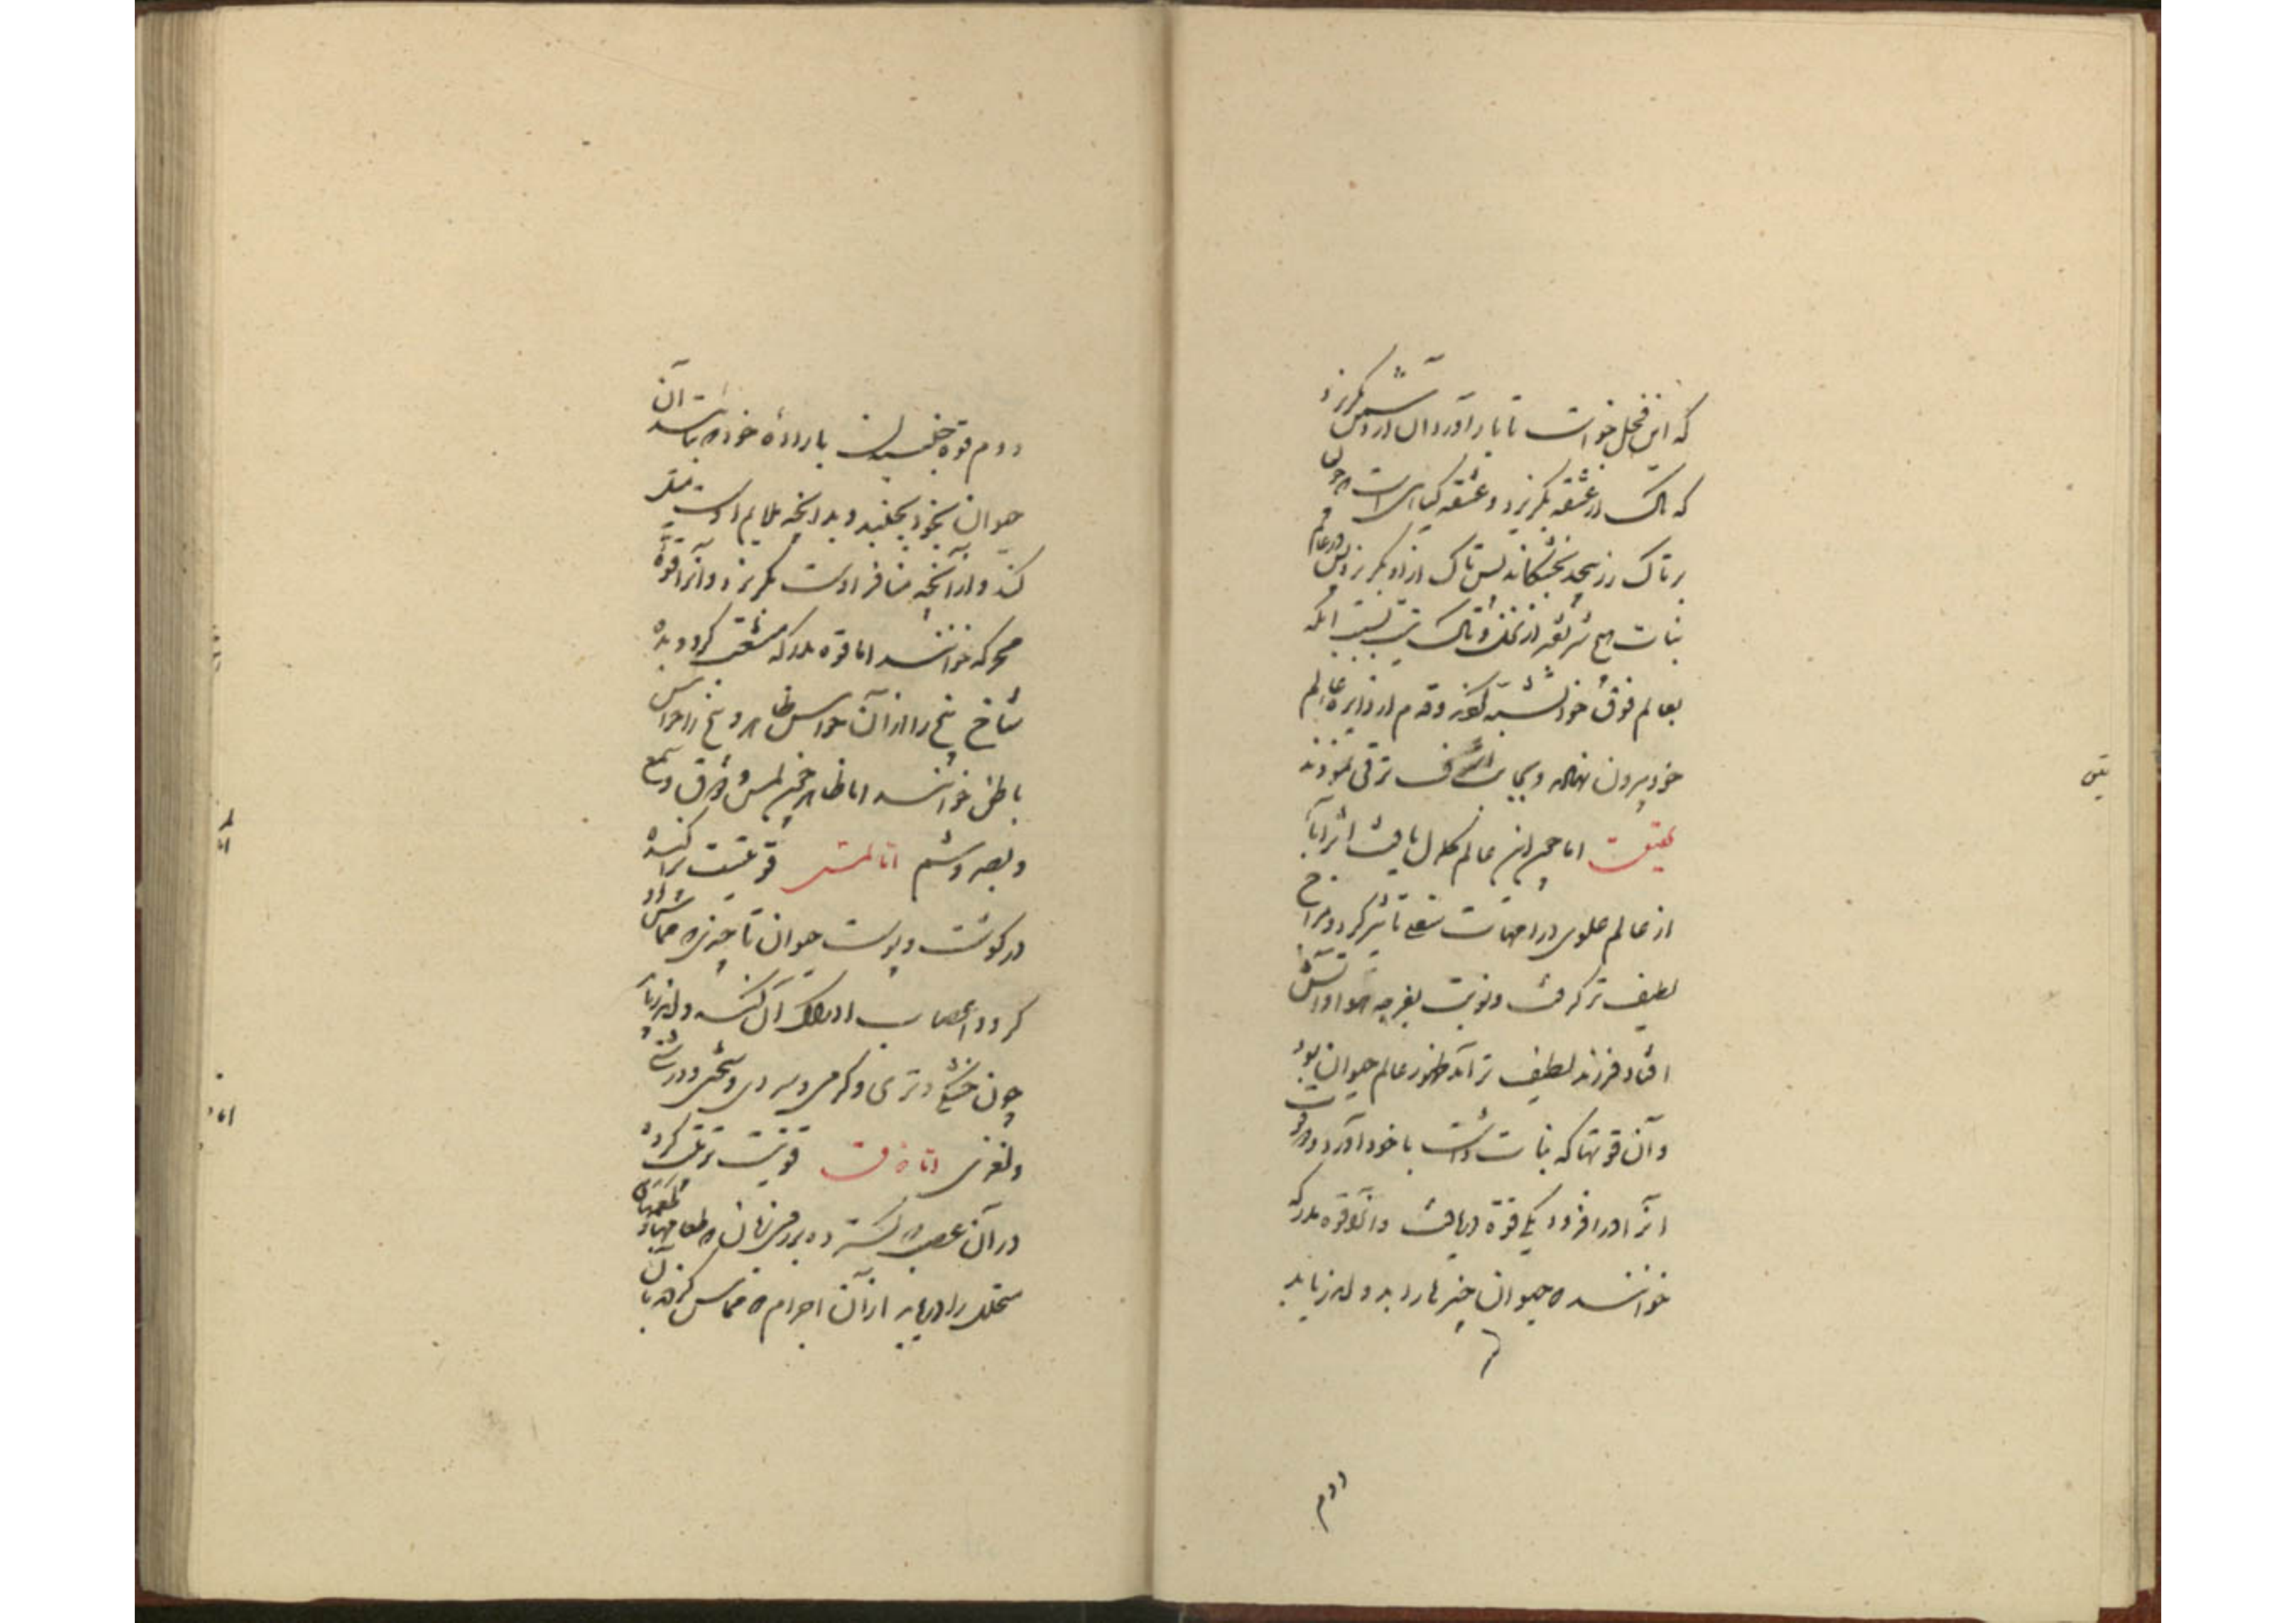 که این فحل خواست تا بار آورد آن در آتش بگریزد
که تاک از عشقه بگریزد و عشقه گیاهی است چون
بر تاک رز پیچد بخشکاند پس تاک ازو بگریزد پس در عالم
نبات هیچ شریفتر از نخل و تاک نیست بسبب آنکه
بعالم فوق خود تشبه کردند و قدم از دایره عالم
خود بیرون نهاده و بجانب اشرف ترقی نمودند
اما چون این عالم کمال یافت اثر آبا
از عالم علوی در امهات سفلی تاثیر کرد و مزاج
لطیف تر گرفت و نوبت بفرجه هوا و آتش
افتاد فرزند لطیف تر آمد ظهور عالم حیوان بود
و آن قوتها که نبات داشت با خود آورد و دو قوت
او را در افزود یکی قوة دریافت و آنرا قوه مدرکه
خوانند که حیوان چیزها را بدو اندریابد
دوم
دوم قوة جنبیدن بارادهٔ خود باشد آن
حیوان بخود بجنبد و بدانچه ملایم اوست میل
کند و از آنچه منافر اوست بگریزد و آنرا قوة
محرکه خوانند اما قوه مدرکه منشعب گردد بده
شاخ پنج را از آن حواس ظاهر و پنج را حواس
باطن خوانند اما ظاهر چون لمس و ذوق و سمع
و بصر و شم اما لمس قوتیست پراکنده
در گوشت و پوست حیوان تا چیزی که مماس او
گردد اعصاب ادراک آن کند و اندریابد
چون خشکی و تری و گرمی و سردی و سختی و درشتی
و نغزی اما ذوق قوتیست ترتیب کرده
در آن عصب که گسترده بر روی زبان که طعامهای
متحلل را دریابد از آن اجرام که مماس گردد بآن